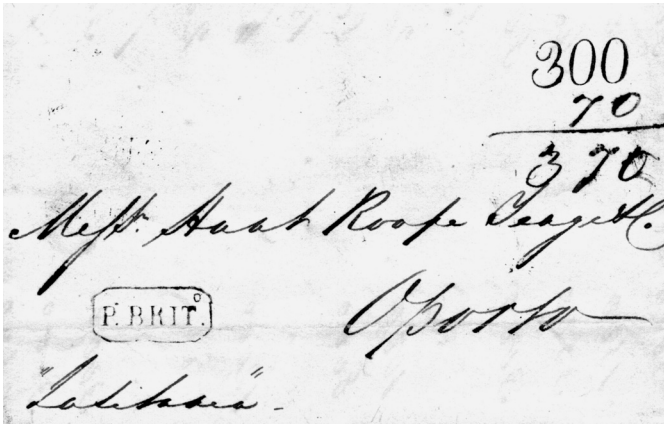 300
70
370
Messrs. Hunt Roope Teage & Co.
Oporto
P. BRITº.
"Lusitania".